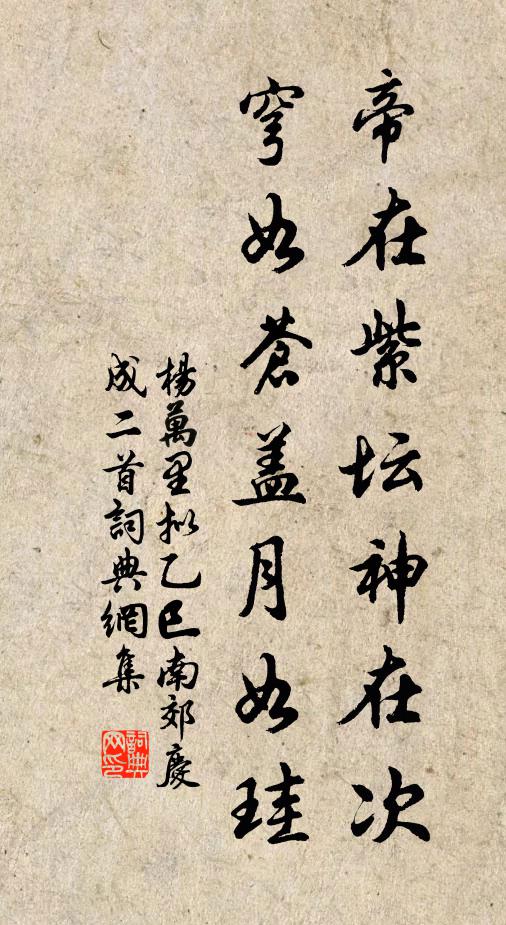 帝在紫坛神在次
穹如蒼盖月如珪
楊萬里拟乙巳南郊慶
成二首詞典網集
詞典網印